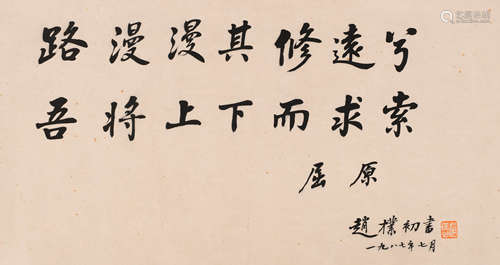 路漫漫其修遠兮
吾將上下而求索
屈原
趙樸初書
一九八七年七月